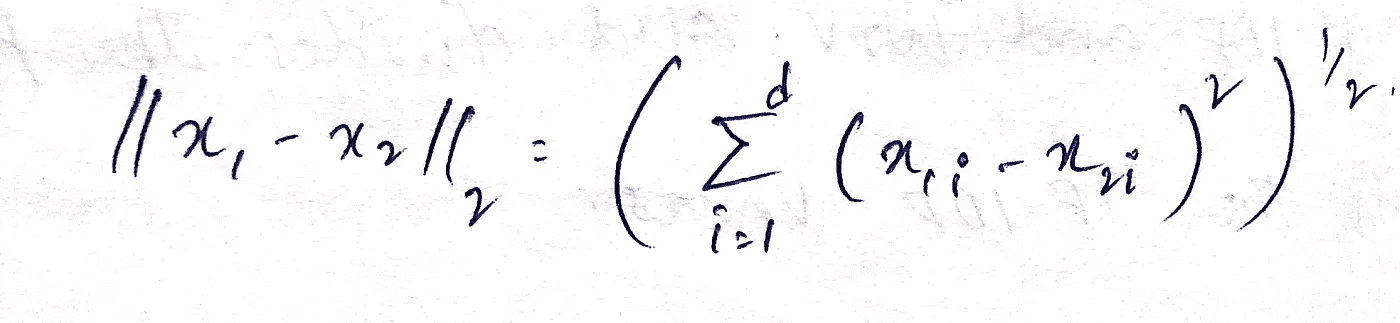 ||x₁ - x₂||₂ = ( ∑ᵢ₌₁ᵈ (x₁ᵢ - x₂ᵢ)² )^1/2.